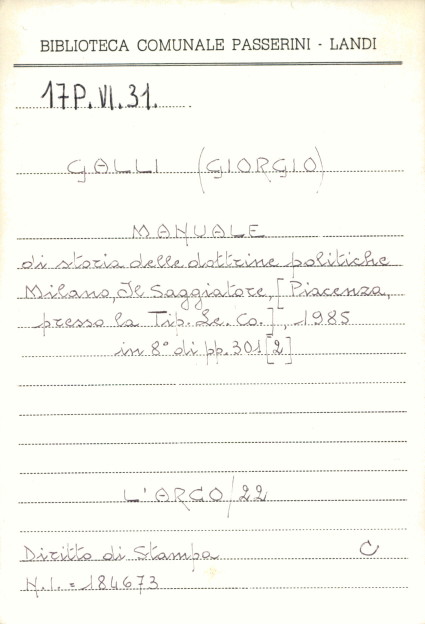 BIBLIOTECA COMUNALE PASSERINI - LANDI
17P.VI.31.
GALLI (GIORGIO)
MANUALE
di storia delle dottrine politiche
Milano, Il Saggiatore, [Piacenza,
presso la Tip. Le. Co.], 1985
in 8° di pp. 301 [2]
L'ARCO/22
Diritto di Stampa C
N.I. = 184673